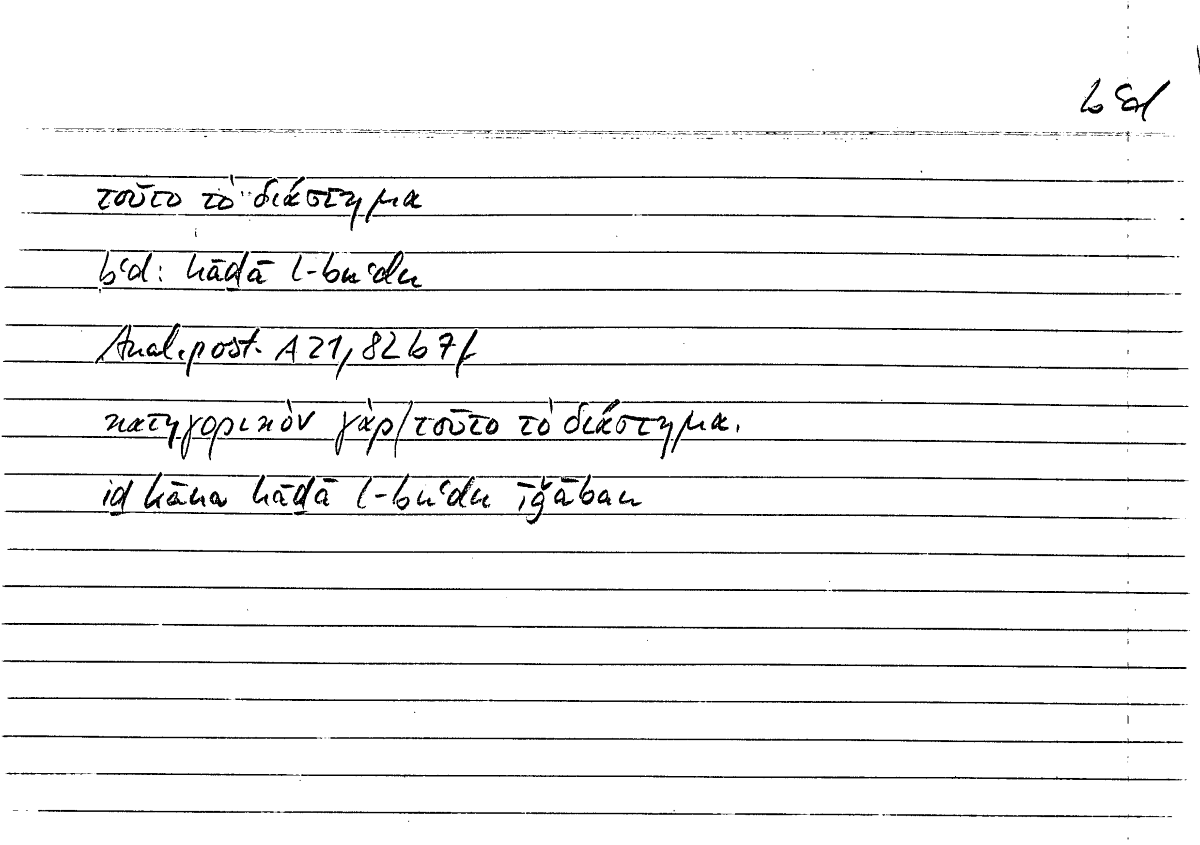 bʿd
τοῦτο τὸ διάστημα
bʿd: hāḏā l-buʿdu
Anal. post. A 21, 82 b 7f
κατηγορικὸν γὰρ/τοῦτο τὸ διάστημα.
iḏ kāna hāḏā l-buʿdu īǧāban